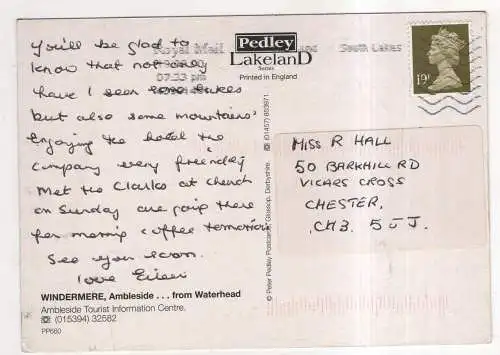 Royal Mail
South Lakes
07:33 pm
Pedley
LakelanD
Series
Printed in England
19
you'll be glad to
know that not only
have I seen lakes
but also some mountains.
Enjoying the hotel the
company very friendly
Met the Clarks at church
on Sunday are going there
for morning coffee tomorrow
See you soon.
love Eileen
© Peter Pedley Postcards, Glossop, Derbyshire. ☎ (01457) 853971
MISS R HALL
50 BARKHILL RD
VICARS CROSS
CHESTER,
CH3. 5JJ.
WINDERMERE, Ambleside . . . from Waterhead
Ambleside Tourist Information Centre.
☎ (015394) 32582
PP660